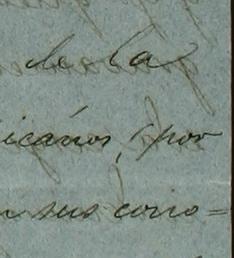 de la
icános, por
n sus cono=